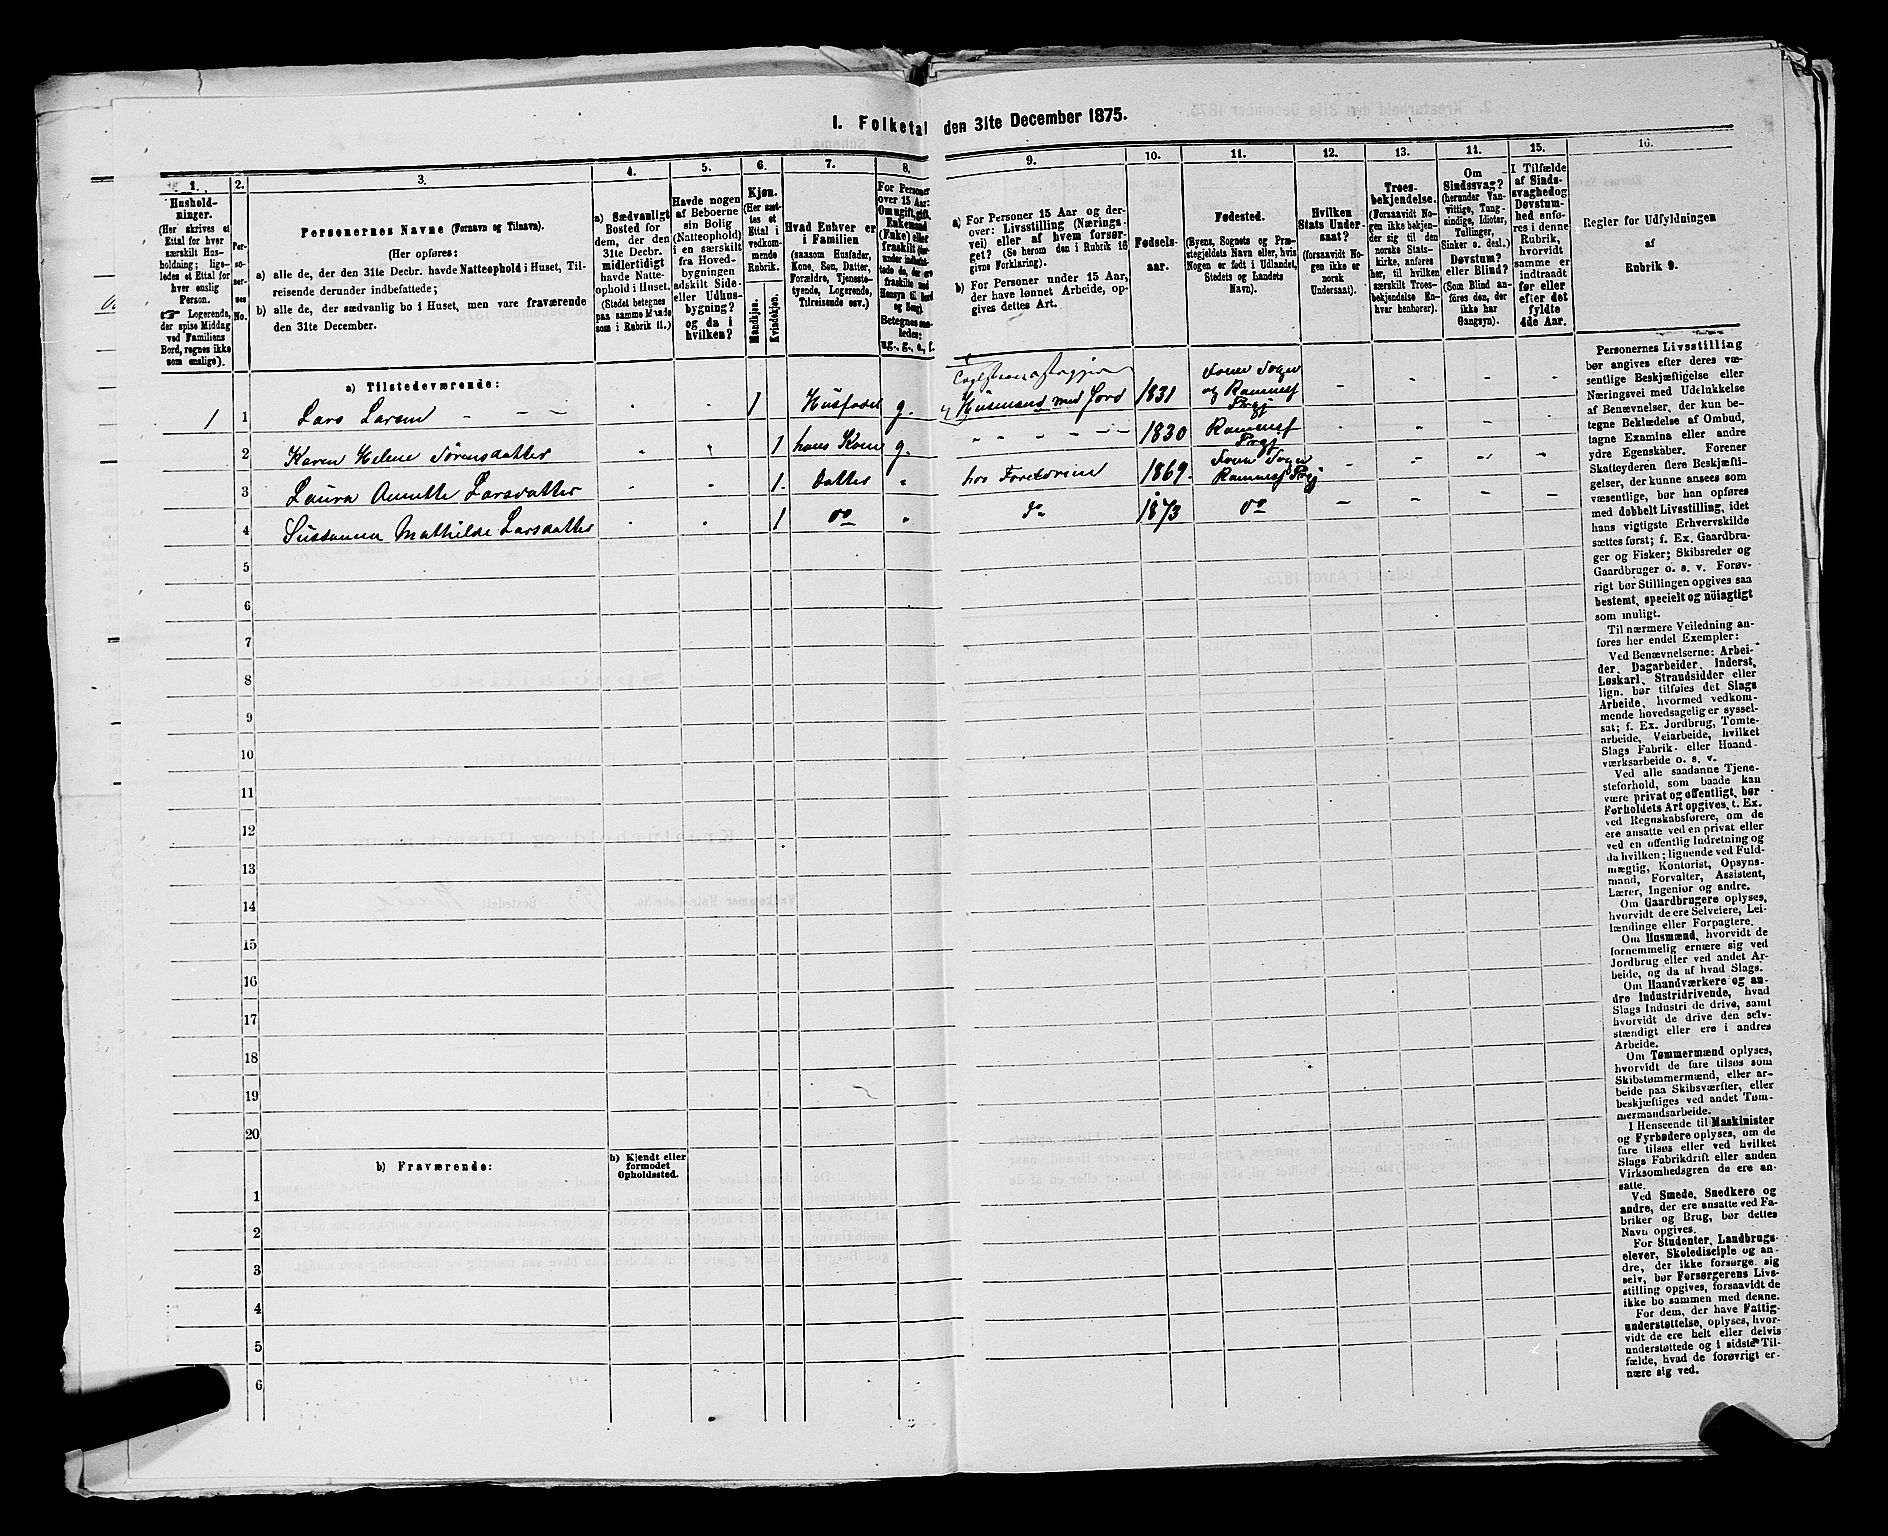 I. Folketal den 31te December 1875.
1. 2. 3. 4. 5. 6. 7. 8. 9. 10. 11. 12. 13. 14. 15. 16.
Husholdninger.
(Her skrives et
Ettal for hver
særskilt Hus-
holdning; lige-
ledes et Ettal for
hver enslig
Person.
Logerende,
der spise Middag
ved Familiens
Bord, regnes ikke
som enslige).
Per-
so-
ner-
nes
No.
Personernes Navne (Fornavn og Tilnavn).
(Her opføres:
a) alle de, der den 31te Decbr. havde Natteophold i Huset, Til-
reisende derunder indbefattede;
b) alle de, der sædvanlig bo i Huset, men vare fraværende
den 31te December.
a) Sædvanligt
Bosted for
dem, der den
31te Decbr.
midlertidigt
havde Natte-
ophold i Huset.
(Stedet betegnes
paa samme Maade
som i Rubrik 11.)
Havde nogen
af Beboerne
sin Bolig
(Natteophold)
i en særskilt
fra Hoved-
bygningen
adskilt Side-
eller Udhus-
bygning?
og da i
hvilken?
Kjøn.
(Her sæt-
tes et
Ettal i
vedkom-
mende
Rubrik.
Mandkjøn.
Kvindekjøn.
Hvad Enhver er
i Familien
(saasom Husfader,
Kone, Søn, Datter,
Forældre, Tjeneste-
tyende, Logerende,
Tilreisende osv.)
For Personer
over 15 Aar:
Om ugift, gift,
Enkemand
(Enke) eller
fraskilt
Betegnes saa-
ledes:
ug., g., e., f.
a) For Personer 15 Aar og der-
over: Livsstilling (Nærings-
vei) eller af hvem forsør-
get? (Se herom den i Rubrik 16
givne Forklaring).
b) For Personer under 15 Aar,
der have lønnet Arbeide, op-
gives dettes Art.
Fødsels-
aar.
Fødested.
(Byens, Sognets og Præ-
stegjeldets Navn eller, hvis
Nogen er født i Udlandet,
Stedets og Landets
Navn).
Hvilken
Stats Under-
saat?
(forsaavidt No-
gen ikke er
norsk
Undersaat).
Troes-
bekjendelse.
(Forsaavidt No-
gen ikke bekjen-
der sig til den
norske Stats-
kirke, anføres
her, til hvilken
særskilt Troes-
bekjendelse En-
hver henhører).
Om
Sindssvag?
(herunder Van-
vittige, Tung-
sindige, Idioter,
Tullinger,
Sinker o. desl.)
Døvstum?
eller Blind?
(Som Blind an-
føres den, der
ikke har
Gangsyn).
I Tilfælde
af Sinds-
svaghed og
Døvstum-
hed anfø-
res i denne
Rubrik,
hvorvidt
samme er
indtraadt
før eller
efter det
fyldte
4de Aar.
Regler for Udfyldningen
af
Rubrik 9.
a) Tilstedeværende:
1 1 Lars Larsen - - - 1 Husfader g. Husmand med Jord 1831 Sogn og Præstgj
2 Karen Helene Sørensdatter 1 hans Kone g. 1830 Prgj
3 Laura Annette Larsdatter 1. Datter hos Foreldrene 1869. Sogn Prgj
4 Sussanna Mathilde Larsdatter 1 do do 1873 do
5
6
7
8
9
10
11
12
13
14
15
16
17
18
19
20
b) Fraværende:
b) Kjendt eller
formodet
Opholdssted.
1
2
3
4
5
6
Personernes Livsstilling
bør angives efter deres væ-
sentlige Beskjæftigelse eller
Næringsvei med Udelukkelse
af Benævnelser, der kun be-
tegne Beklædelse af Ombud,
tagne Examina eller andre
ydre Egenskaber. Forener
Skatteyderen flere Beskjæfti-
gelser, der kunne ansees som
væsentlige, bør han opføres
med dobbelt Livsstilling, idet
hans vigtigste Erhvervskilde
sættes først; f. Ex. Gaardbru-
ger og Fisker; Skibsreder og
Gaardbruger o. s. v. Forøv-
rigt bør Stillingen opgives saa
bestemt, specielt og nøiagtigt
som muligt.
Til nærmere Veiledning an-
føres her endel Exempler:
Ved Benævnelserne: Arbei-
der, Dagarbeider, Inderst,
Løskarl, Strandsidder eller
lign. bør tilføies det Slags
Arbeide, hvormed vedkom-
mende hovedsagelig er syssel-
sat; f. Ex. Jordbrug, Tomte-
arbeide, Veiarbeide, hvilket
Slags Fabrik- eller Haand-
værksarbeide o. s. v.
Ved alle saadanne Tjene-
steforhold, som baade kan
være privat og offentligt, bør
Forholdets Art opgives, t. Ex.
ved Regnskabsførere, om de
ere ansatte ved en privat eller
ved en offentlig Indretning og
da hvilken; lignende ved Fuld-
mægtig, Kontorist, Opsyns-
mand, Forvalter, Assistent,
Lærer, Ingeniør og andre.
Om Gaardbrugere oplyses,
hvorvidt de ere Selveiere, Lei-
lændinge eller Forpagtere.
Om Husmænd, hvorvidt de
fornemmelig ernære sig ved
Jordbrug eller ved andet Ar-
beide, og da af hvad Slags.
Om Haandværkere og an-
dre Industridrivende, hvad
Slags Industri de drive, samt
hvorvidt de drive den selv-
stændigt eller ere i andres
Arbeide.
Om Tømmermænd oplyses,
hvorvidt de fare tilsøs som
Skibstømmermænd, eller ar-
beide paa Skibsværfter, eller
beskjæftiges ved andet Tøm-
mermandsarbeide.
I Henseende til Maskinister
og Fyrbødere oplyses, om de
fare tilsøs eller ved hvilket
Slags Fabrikdrift eller anden
Virksomhedsgren de ere an-
satte.
Ved Smede, Snedkere og
andre, der ere ansatte ved Fa-
briker og Brug, bør dettes
Navn opgives.
For Studenter, Landbrugs-
elever, Skoledisciple og an-
dre, der ikke forsørge sig
selv, bør Forsørgerens Livs-
stilling opgives, forsaavidt de
ikke bo sammen med denne.
For dem, der have Fattig-
understøttelse, oplyses, hvor-
vidt de ere helt eller delvis
understøttede og i sidste Til-
fælde, hvad de forøvrigt er-
nære sig ved.